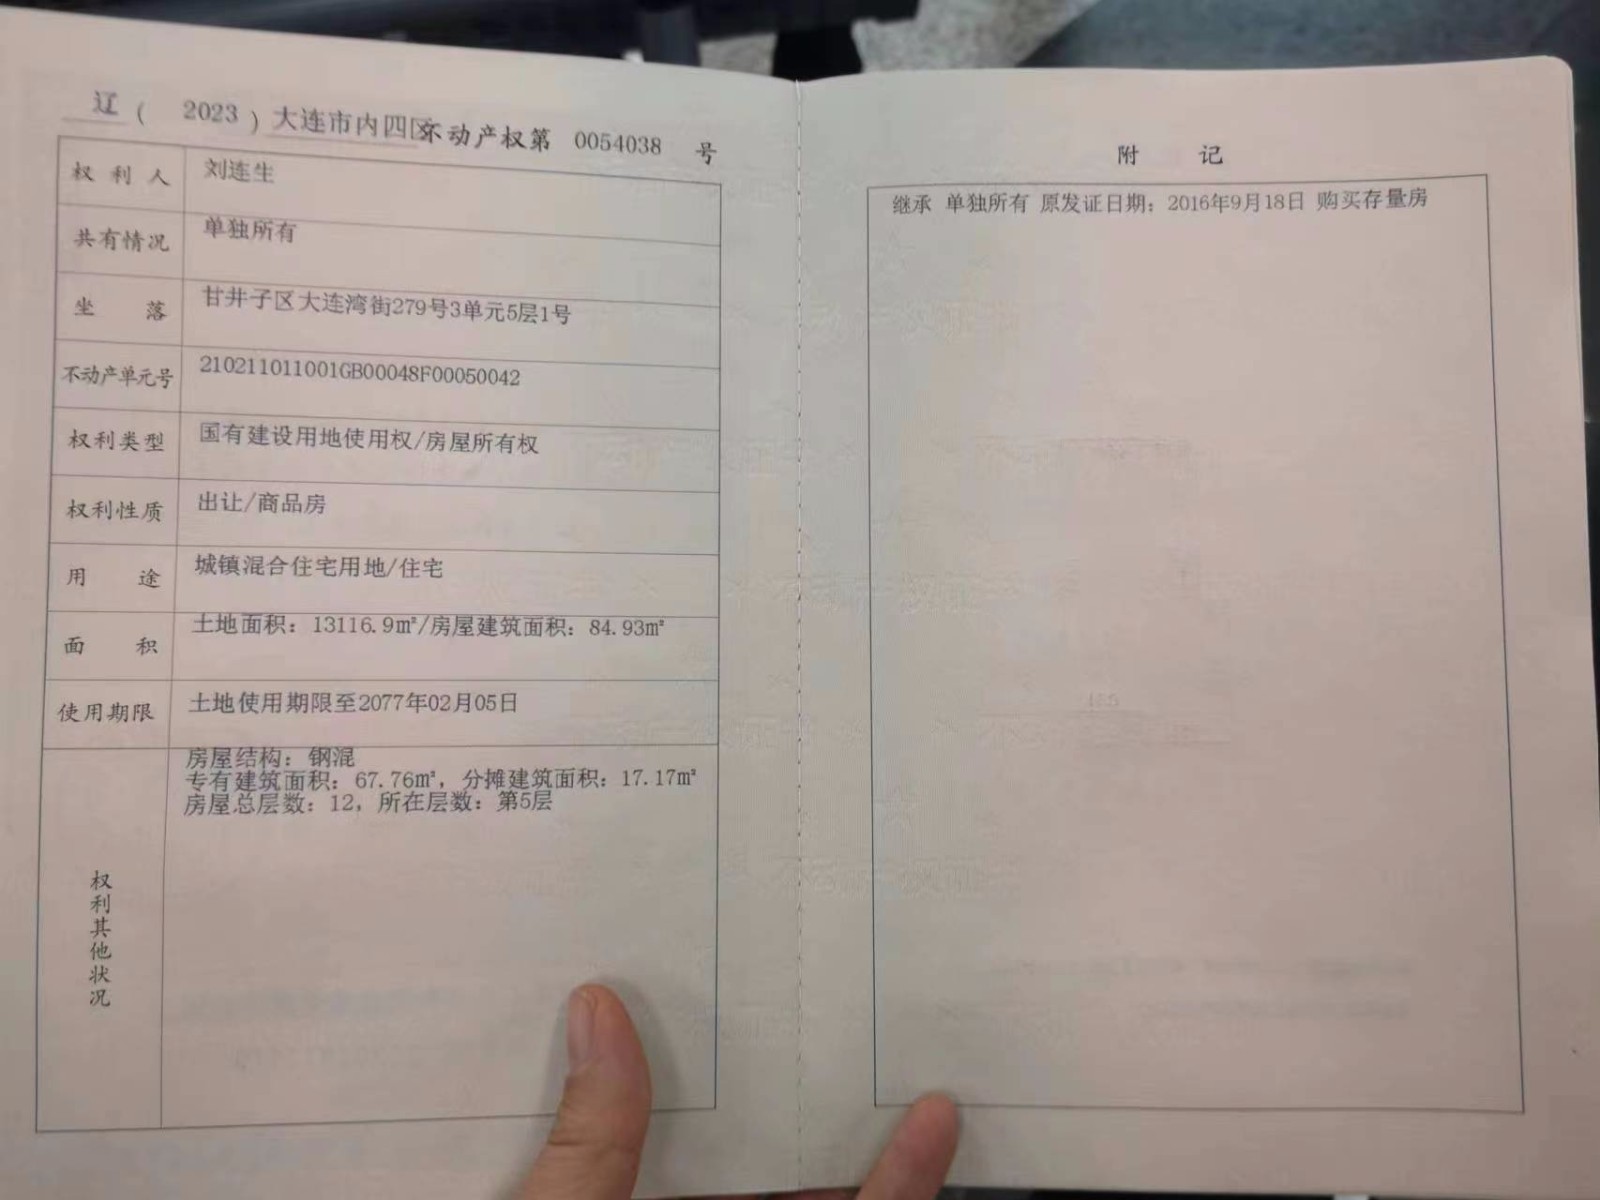 辽（ 2023 ）大连市内四区不动产权第 0054038 号
权利人 刘连生
共有情况 单独所有
坐落 甘井子区大连湾街279号3单元5层1号
不动产单元号 210211011001GB00048F00050042
权利类型 国有建设用地使用权/房屋所有权
权利性质 出让/商品房
用途 城镇混合住宅用地/住宅
面积 土地面积：13116.9㎡/房屋建筑面积：84.93㎡
使用期限 土地使用期限至2077年02月05日
权利其他状况
房屋结构：钢混
专有建筑面积：67.76㎡，分摊建筑面积：17.17㎡
房屋总层数：12，所在层数：第5层
附记
继承 单独所有 原发证日期：2016年9月18日 购买存量房